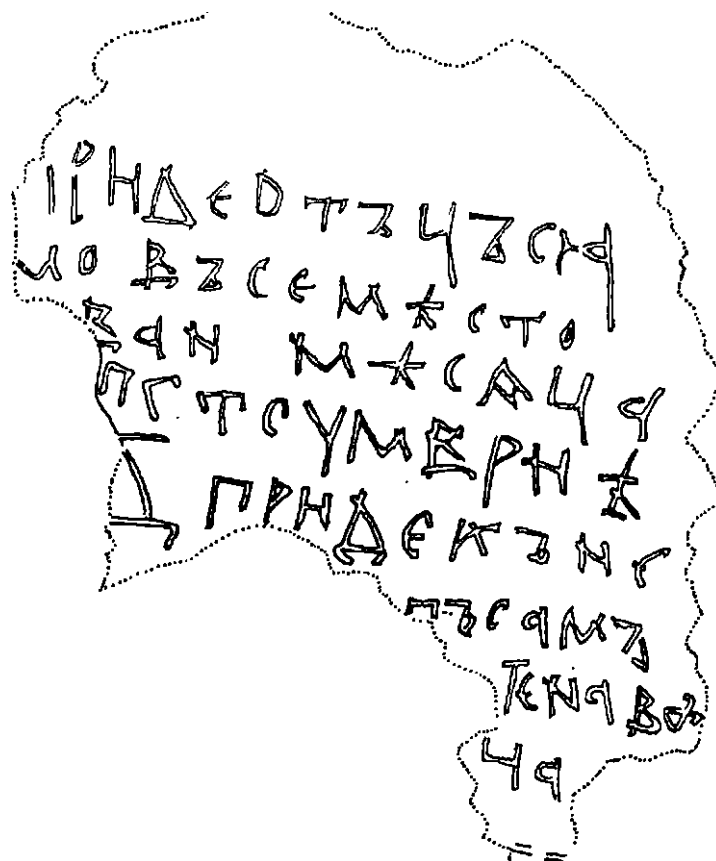 НДЕОТЪЧЪС
ЛО ВЪСЕМѢСТО
ЗАН МѢСАЦ
ПГТСУМВРНѢ
ПРНДЕКЪНГ
ПЪСАМЪ
ТЕНАВО
ЧА